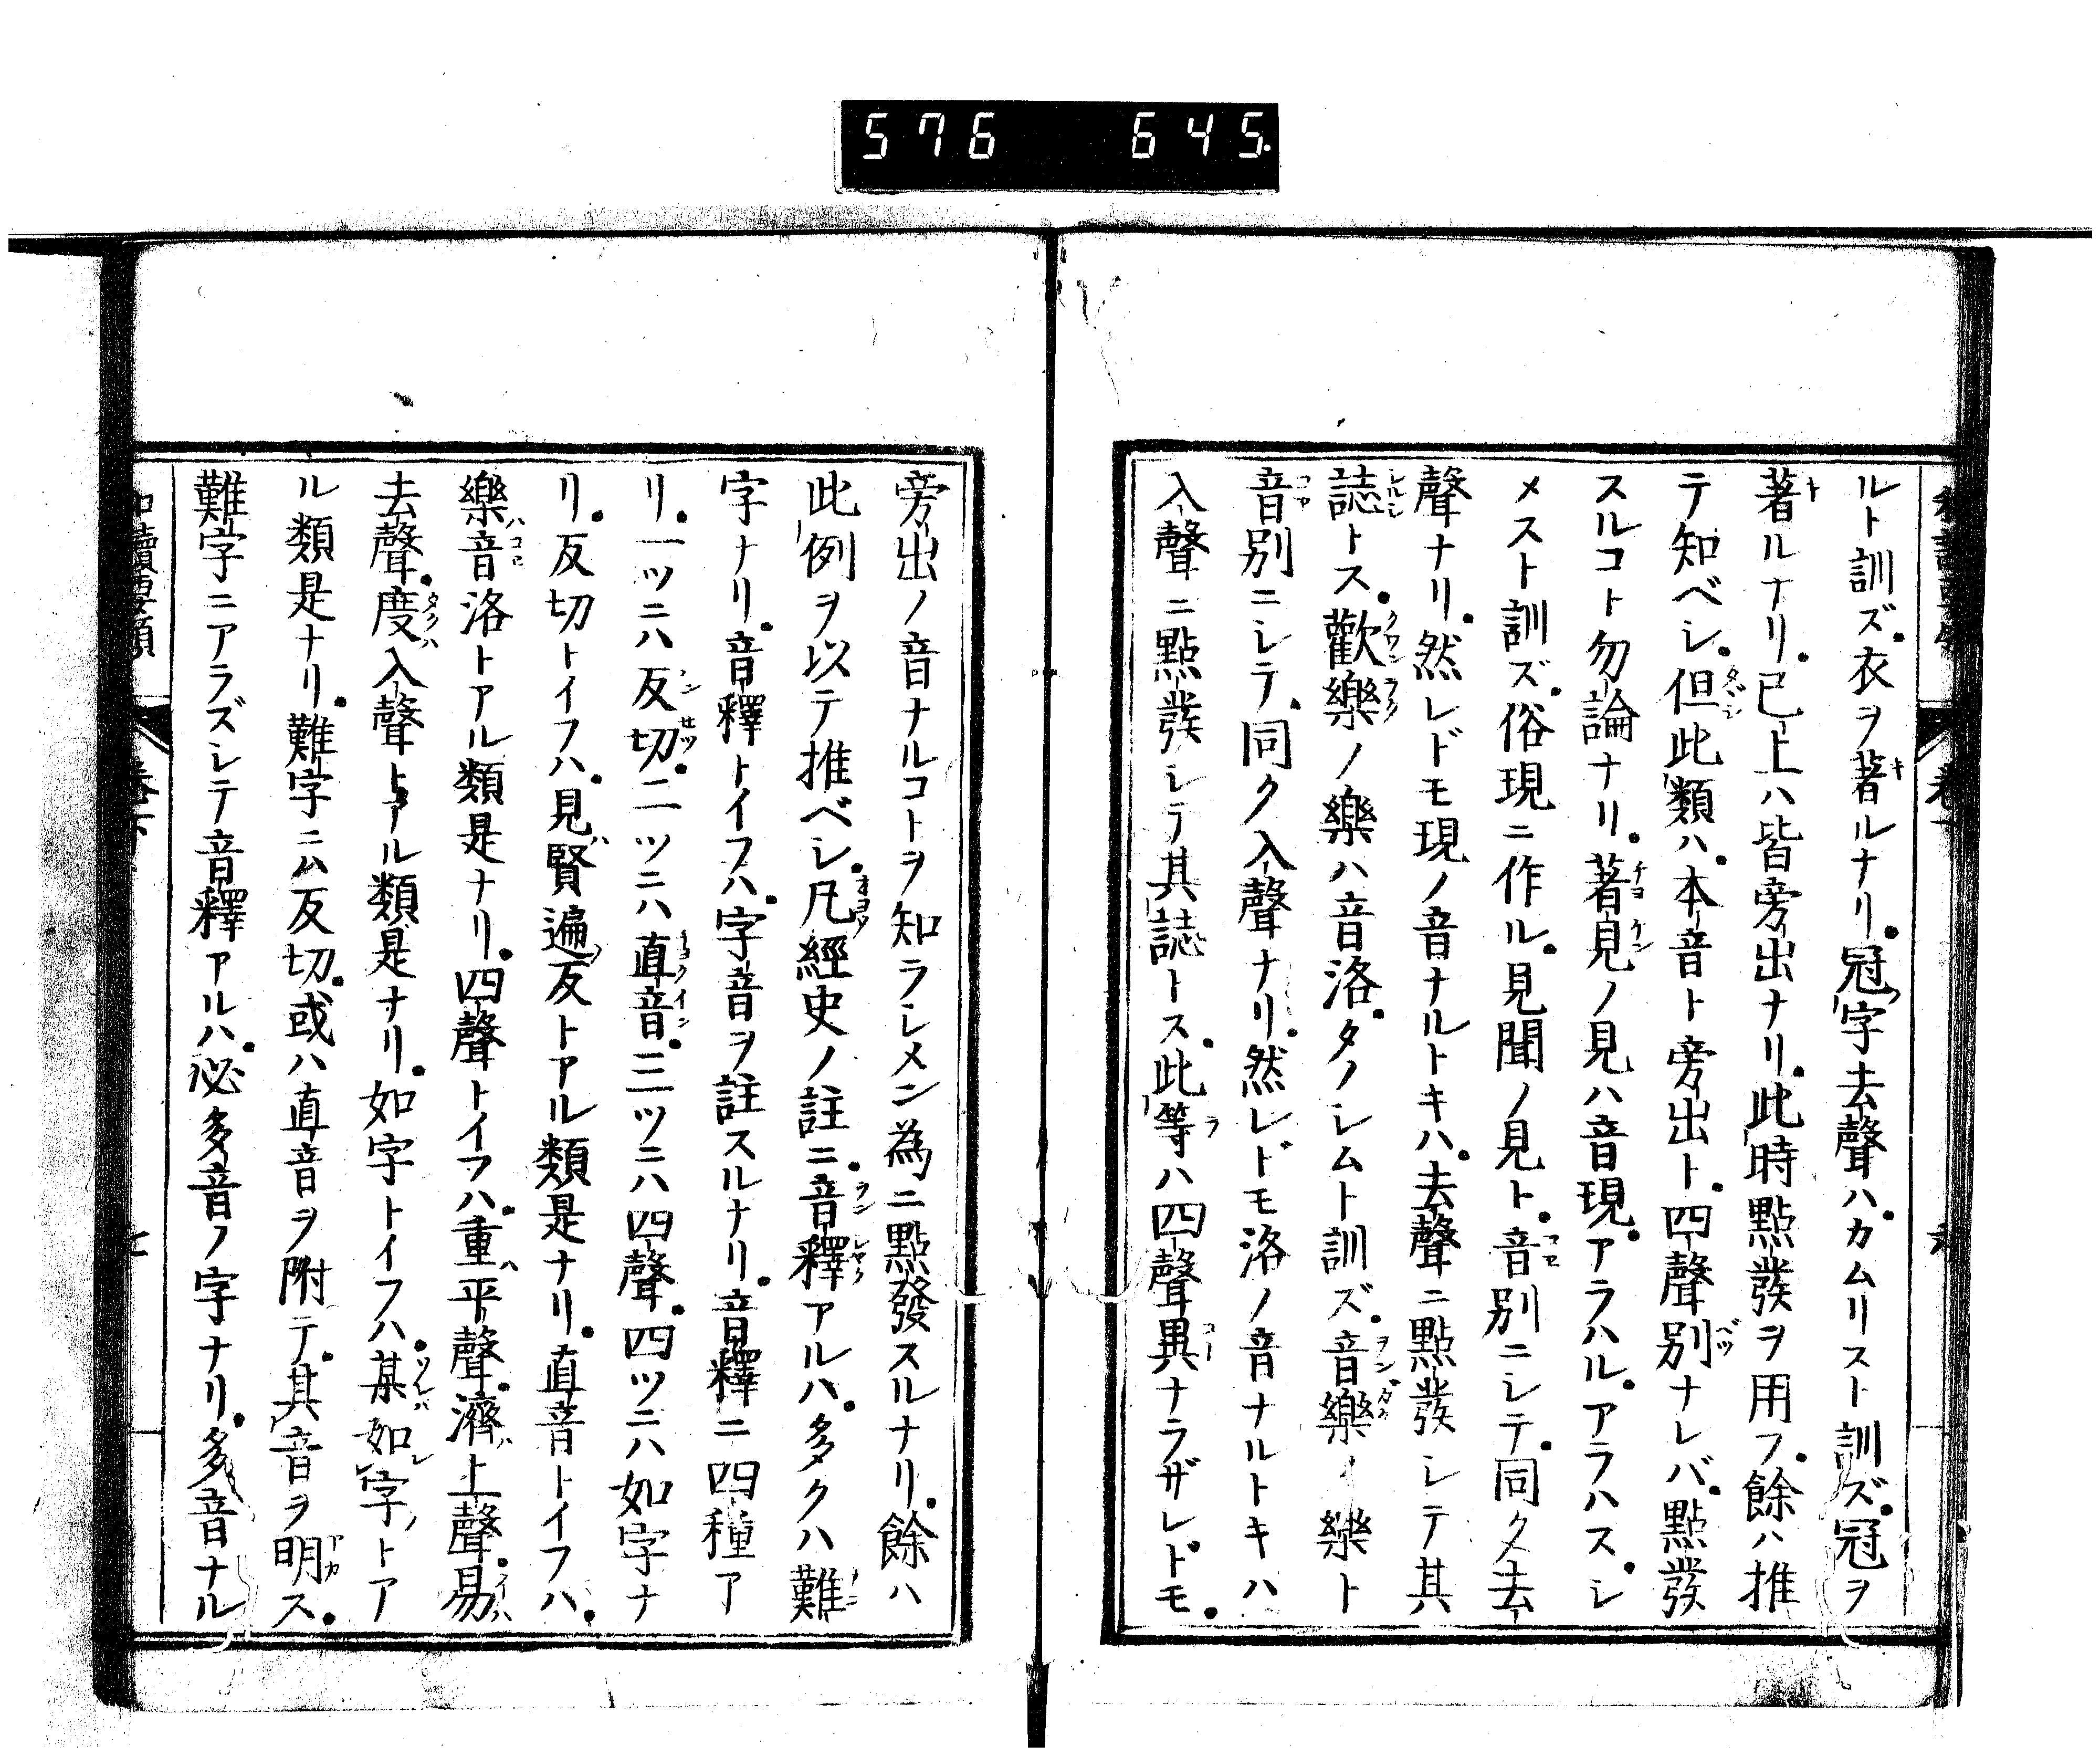 576 645
ルト訓ズ。衣ヲ著ルナリ。冠字去聲ハ。カムリスト訓ズ。冠ヲ
著ルナリ。已上ハ皆旁出ナリ。此時點發ヲ用フ。餘ハ推
テ知ベシ。但此類ハ。本音ト旁出ト。四聲別ナレバ。點發
スルコト勿論ナリ。著見ノ見ハ音現。アラハル。アラハス。シ
メスト訓ズ。俗現ニ作ル。見聞ノ見ト。音別ニシテ。同ク去
聲ナリ。然レドモ現ノ音ナルトキハ。去聲ニ點發シテ其
誌トス。歡樂ノ樂ハ音洛。タノシムト訓ズ。音樂ノ樂ト
音別ニシテ。同ク入聲ナリ。然レドモ洛ノ音ナルトキハ
入聲ニ點發シテ其誌トス。此等ハ四聲異ナラザレドモ。
旁出ノ音ナルコトヲ知ラシメン為ニ點發スルナリ。餘ハ
此例ヲ以テ推ベシ。凡經史ノ註ニ。音釋アルハ。多クハ難
字ナリ。音釋トイフハ。字音ヲ註スルナリ。音釋ニ四種ア
リ。一ツニハ反切。二ツニハ直音。三ツニハ四聲。四ツニハ如字ナ
リ。反切トイフハ。見賢遍反トアル類是ナリ。直音トイフハ。
樂音洛トアル類是ナリ。四聲トイフハ。重平聲。濟上聲。易
去聲。度入聲トアル類是ナリ。如字トイフハ。某如字トア
ル類是ナリ。難字ニハ反切。或ハ直音ヲ附テ。其音ヲ明ス。
難字ニアラズシテ音釋アルハ。必多音ノ字ナリ。多音ナル